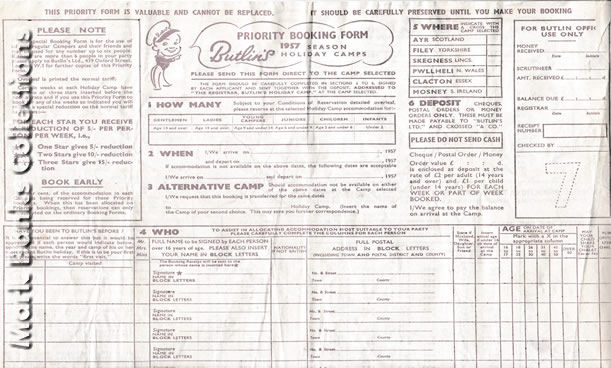 THIS PRIORITY FORM IS VALUABLE AND CANNOT BE REPLACED. IT SHOULD BE CAREFULLY PRESERVED UNTIL YOU MAKE YOUR BOOKING
PLEASE NOTE
special Booking Form is for the use of
regular Campers and their friends and
used for any number up to six people.
are more than 6 people in your party
apply to Butlin's Ltd., 439 Oxford Street,
W.1 for further copies of this Priority
is printed the normal tariff.
weeks at each Holiday Camp have
three stars inserted before the
and if you use this Priority Form to
any of the weeks so indicated you will
reduction on the normal tariff
EACH STAR YOU SECURE
REDUCTION OF 5/- PER PER-
PER WEEK, i.e.,
One Star gives 5/- reduction
Two Stars give 10/- reduction
Three Stars give 15/- reduc-
tion
BOOK EARLY
cent. of the accommodation in each
being reserved for these Priority
When this has been allocated on
bookings, then reservation can only
on the ordinary Booking Forms.
PRIORITY BOOKING FORM
Butlin's 1957 SEASON
HOLIDAY CAMPS
PLEASE SEND THIS FORM DIRECT TO THE CAMP SELECTED
THE FORM SHOULD BE CAREFULLY COMPLETED IN SECTIONS 1 TO 6, SIGNED
BY EACH APPLICANT AND SENT TOGETHER WITH THE DEPOSIT, ADDRESSED TO
"THE REGISTRAR, BUTLIN'S HOLIDAY CAMP," AT THE CAMP SELECTED.
1 HOW MANY Subject to your Conditions of Reservation detailed overleaf,
please reserve at the selected Holiday Camp accommodation for:—
GENTLEMEN LADIES YOUNG CAMPERS JUNIORS CHILDREN INFANTS
Age 14 and over Age 14 and over Under 2
2 WHEN I/We arrive on 1957
and depart on 1957
If accommodation is not available on the above dates, the following dates are acceptable
I/We arrive on and depart on 1957
3 ALTERNATIVE CAMP Should accommodation not be available on either
of the above dates at the Camp selected
I/We request that this booking be transferred for the same dates
to Holiday Camp. (Insert the name of
the Camp of your second choice. This may save you further correspondence.)
5 WHERE INDICATE WITH A CROSS THE CAMP SELECTED
AYR SCOTLAND
FILEY YORKSHIRE
SKEGNESS LINCS.
PWLLHELI N. WALES
CLACTON ESSEX
MOSNEY S. IRELAND
6 DEPOSIT CHEQUES,
POSTAL ORDERS OR MONEY
ORDERS ONLY. THESE MUST BE
MADE PAYABLE TO "BUTLIN'S
LTD." AND CROSSED "& CO."
PLEASE DO NOT SEND CASH
Cheque / Postal Order / Money
Order value £ : s. d.
is enclosed as deposit at the
rate of £2 per adult (14 years
and over) and £1 per child
(under 14 years) FOR EACH
WEEK OR PART OF WEEK
BOOKED.
I/We agree to pay the balance
on arrival at the Camp.
FOR BUTLIN OFFICE
USE ONLY
MONEY
RECEIVED
Date Initials
SCRUTINEER
AMT. RECEIVED £
BALANCE DUE £
REGISTRAR
Date Initials
RECEIPT
NUMBER
CHECKED BY
7
YOU BEEN TO BUTLIN'S BEFORE?
Camp visited
4 WHO TO ASSIST IN ALLOCATING ACCOMMODATION MOST SUITABLE TO YOUR PARTY
PLEASE CAREFULLY COMPLETE THE COLUMNS FOR EACH PERSON
Mr. Mrs. Miss
FULL NAME to be SIGNED by EACH PERSON
over 16 years of age. PLEASE ALSO INSERT
YOUR NAME IN BLOCK LETTERS
NATIONALITY IF NOT BRITISH
FULL POSTAL
ADDRESS IN BLOCK LETTERS
(INCLUDING TOWN AND POSTAL DISTRICT AND COUNTY)
AGE ON DATE OF ARRIVAL AT CAMP
Mark with a X in the
appropriate column
The Booking Receipt will be sent to the
person whose name is inserted here
Signature ★
NAME IN
BLOCK LETTERS
No. & Street
Town County
Signature
NAME IN
BLOCK LETTERS
No. & Street
Town County
Signature
NAME IN
BLOCK LETTERS
No. & Street
Town County
Signature
NAME IN
BLOCK LETTERS
No. & Street
Town County
Signature
NAME IN
BLOCK LETTERS
No. & Street
Town County
Mark Boniks Collections